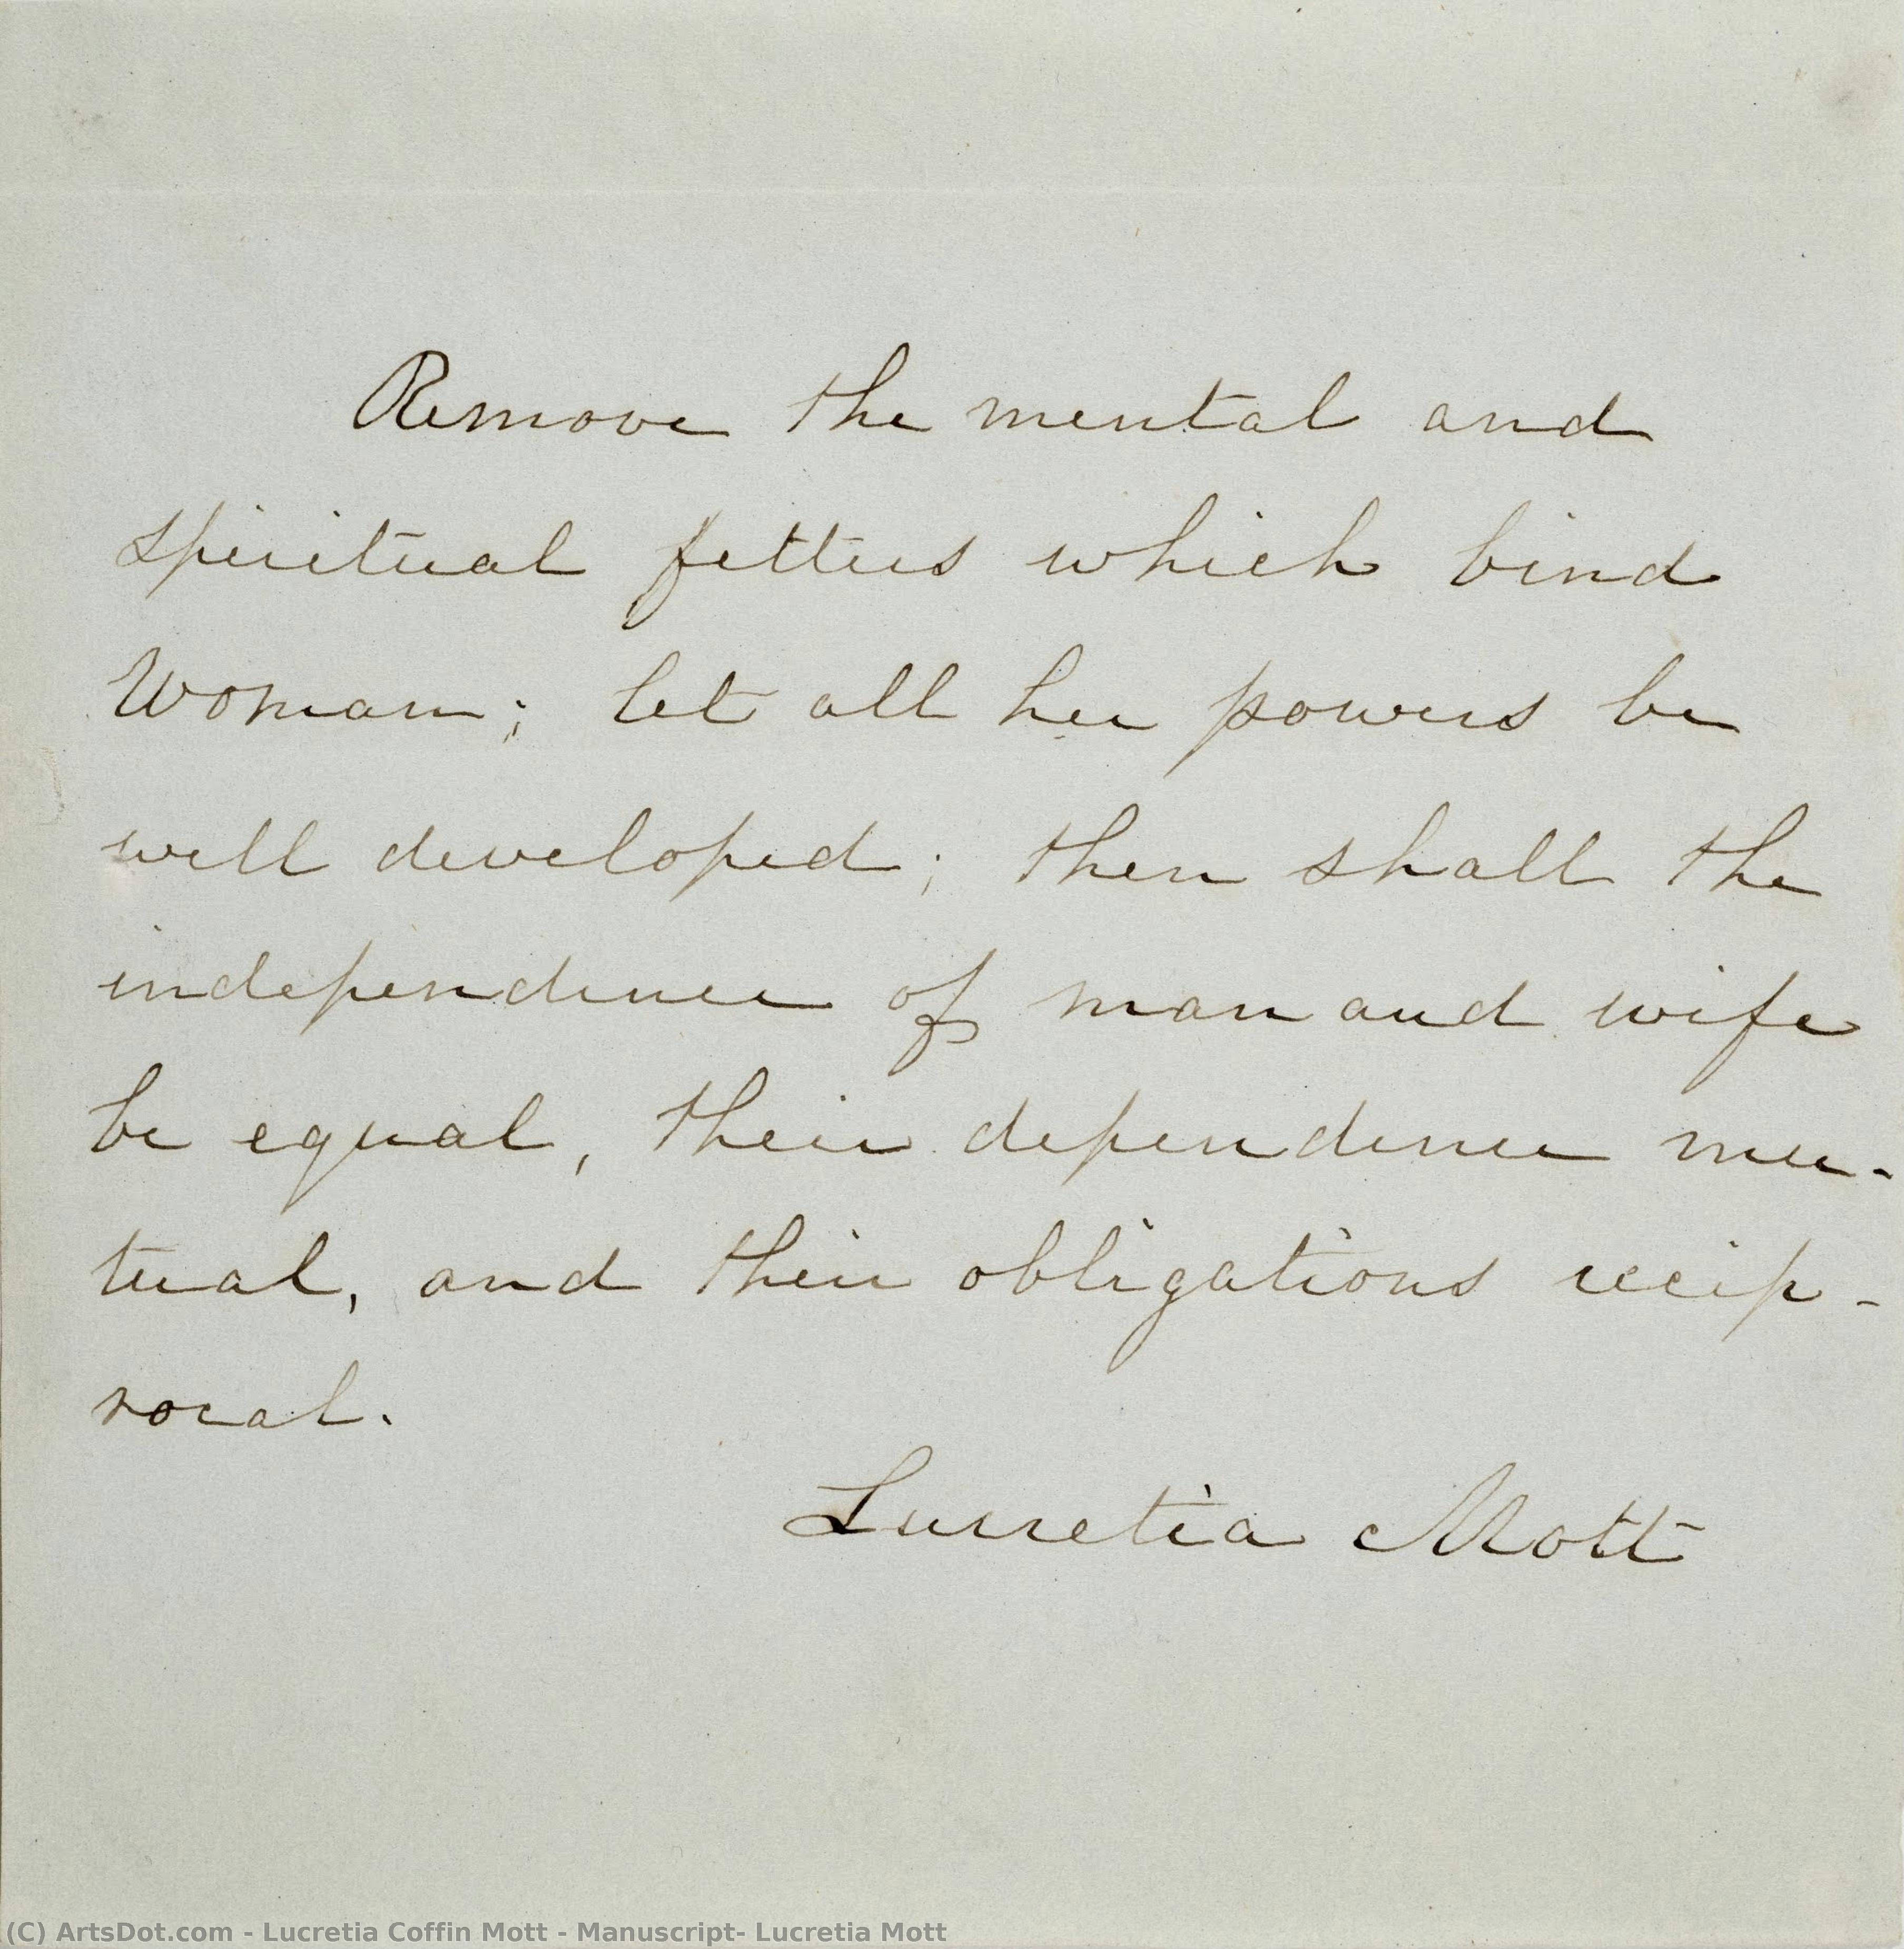 Remove the mental and
spiritual fetters which bind
Woman; let all her powers be
well developed; then shall the
independence of man and wife
be equal, their dependence mu-
tual, and their obligations recip-
rocal.
Lucretia Mott
(C) ArtsDot.com - Lucretia Coffin Mott - Manuscript- Lucretia Mott